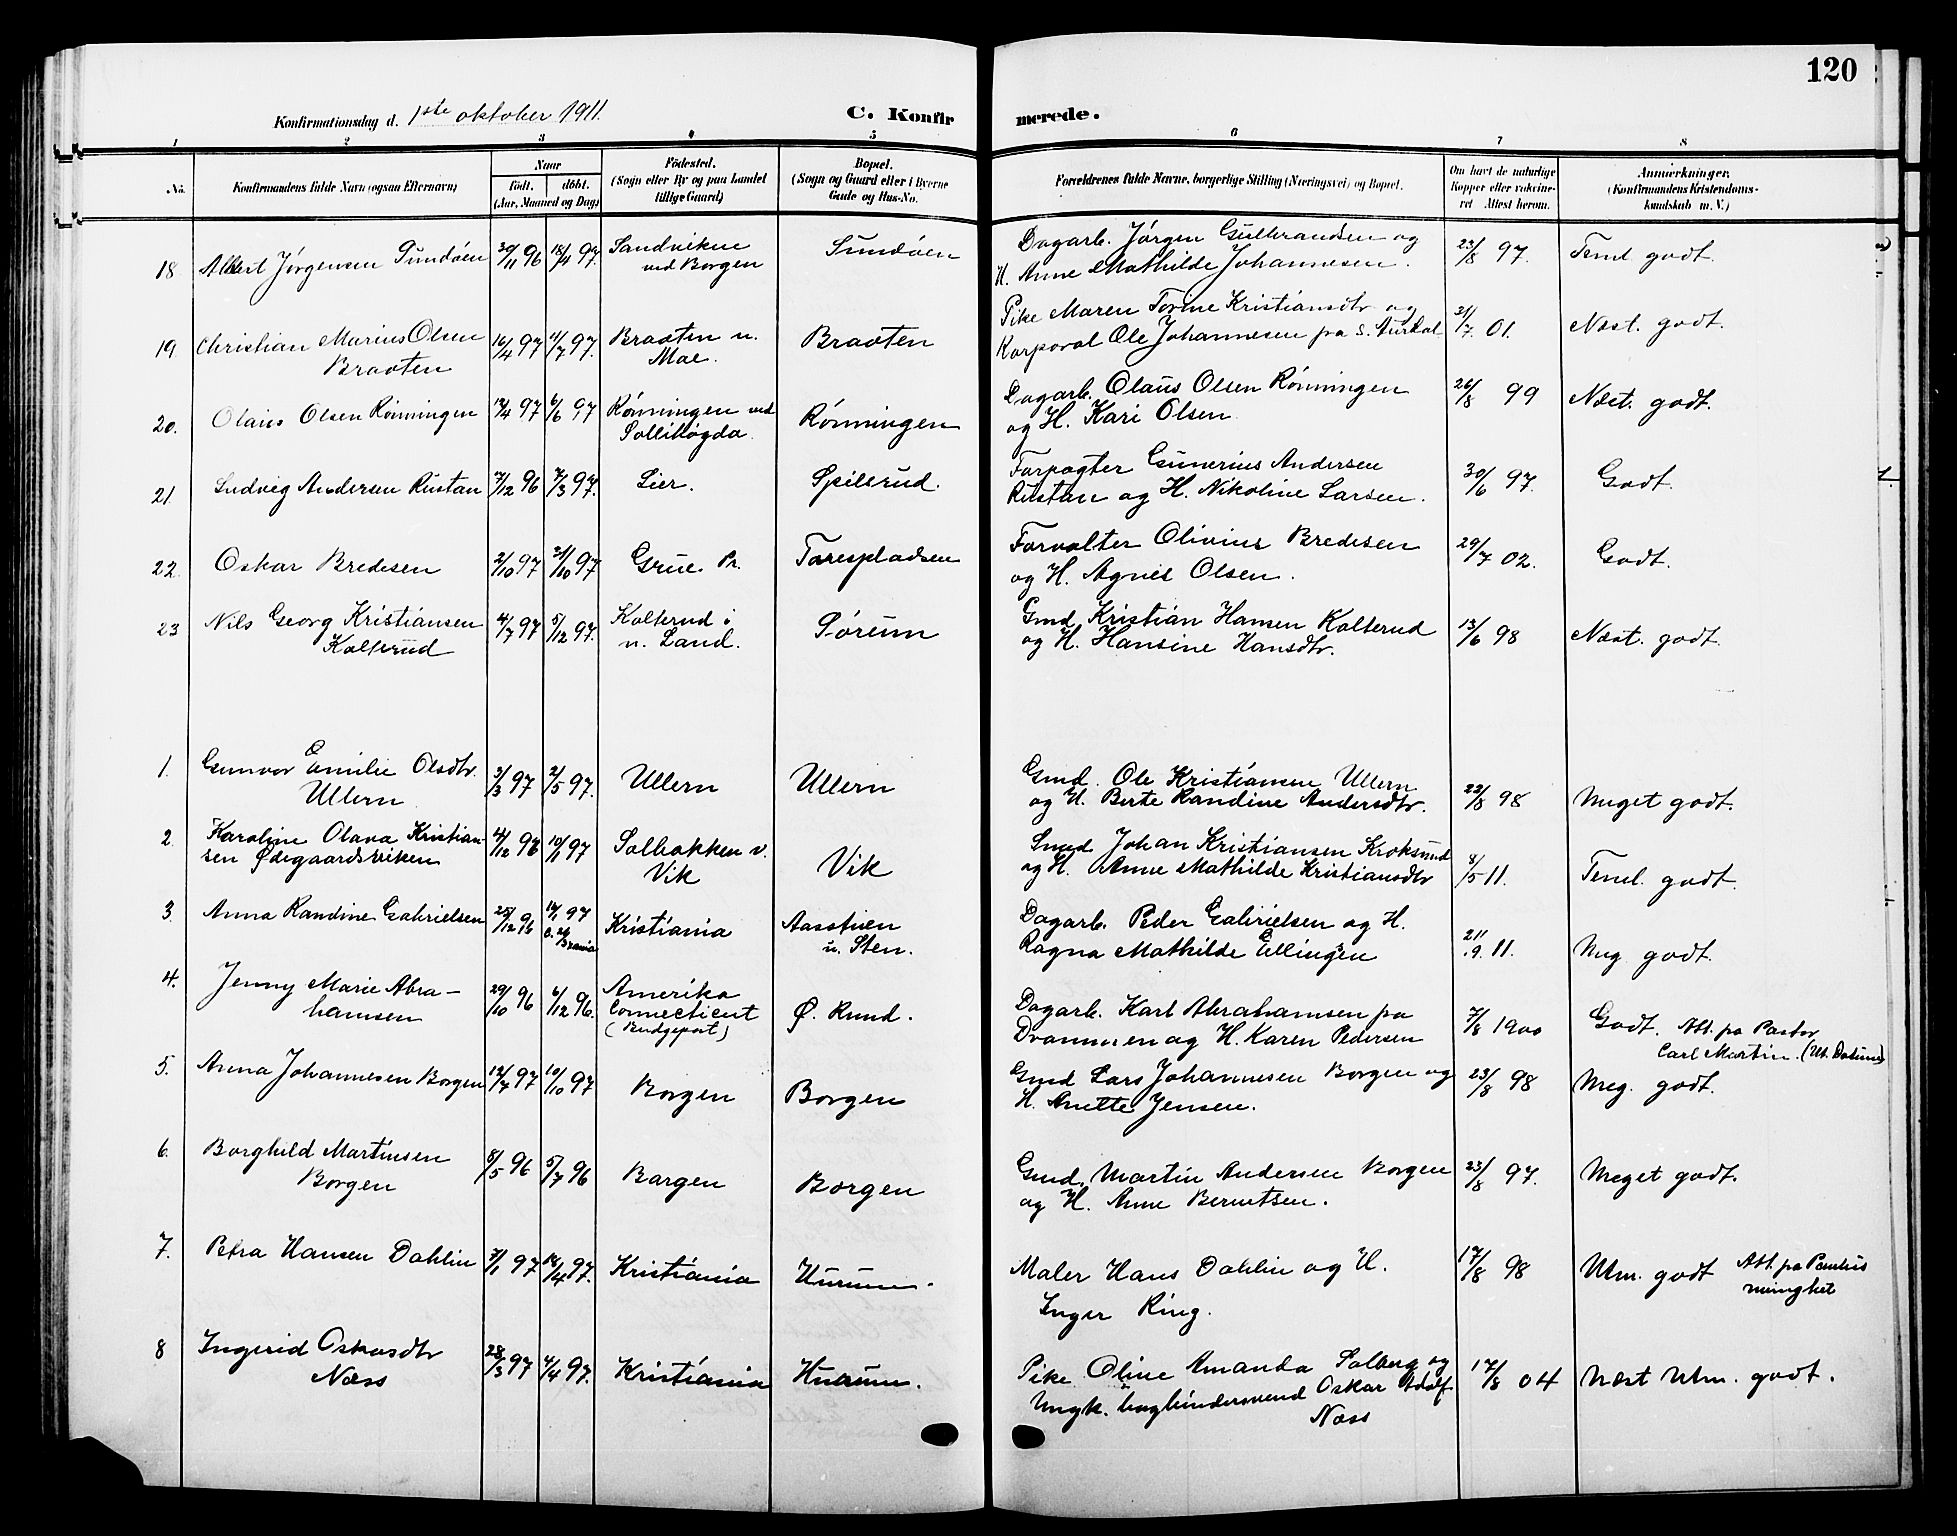 120
Konfirmationsdag d. 1ste oktober 1911.
C. Konfirmerede.
1 2 3 4 5 6 7 8
No.
Konfirmandens fulde Navn (ogsaa Efternavn)
Naar
födt. döbt.
(Aar, Maaned og Dag)
Födested.
(Sogn eller By og paa Landet
tillige Gaard)
Bopæl.
(Sogn og Gaard eller i Byerne
Gade og Hus-No.
Forældrenes fulde Navne, borgerlige Stilling (Næringsvei) og Bopæl.
Om havt de naturlige
Kopper eller vakcine-
ret Attest herom.
Anmærkninger.
(Konfirmandens Kristendoms-
kundskab m. V.)
18 Albert Jörgensen Sundöen 30/11 96 18/4 97. Sandviken
ved Borgen
Sundöen
Dagarb. Jörgen Gulbrandsen og
H. Anne Mathilde Johannesen.
23/8 97. Temel. godt.
19 Christian Marius Olsen
Braaten
16/4 97 11/7 97. Braaten u.
Moe.
Braaten
Pike Maren Torine Kristiansdtr og
Korporal Ole Johannesen fra S. Aurdal
31/7. 01. Næst. godt.
20. Olaus Olsen Rönningen 17/4 97 6/6 97 Rönningen ved
Sollihögda.
Rönningen
Dagarb. Olaus Olsen Rönningen
og H. Kari Olsen
26/8 99 Næst. godt.
21. Ludvig Andersen Rustan 7/12 96 7/3 97. Lier. Speilsrud.
Forpagter Gunerius Andersen
Rustan og H. Nikoline Larsen.
30/6 97. Godt.
22. Oskar Bredesen 2/10 97 31/10 97 Grue Pr. Toresplodsen
Forvalter Olivius Bredesen
og H. Agnes Olsen.
29/7 02. Godt.
23 Nils Georg Kristiansen
Kolterud
4/7 97 5/12 97. Kolterud i
n. Land.
Sörum
Gmd Kristian Hansen Kolterud
og H. Hansine Hansdtr.
13/6 98 Næst. godt.
1. Gunvor Emilie Olsdtr.
Ullern
3/3 97 2/5 97. Ullern Ullern
Gmd. Ole Kristiansen Ullern
og H. Berte Randine Andersdtr.
22/8 98 Meget godt.
2. Karoline Olava Kristian-
sen Ødegaardsviken
4/12 96 10/1 97 Solbakken v.
Vik
Vik
Smed Johan Kristiansen Kroksund
og H. Anne Mathilde Kristiansdtr
8/5 11. Temel. godt.
3. Anna Randine Gabrielsen 25/12 96 97
Kristiania
Aasstuen
u. Sten.
Dagarb. Peder Gabrielsen og H.
Ragna Mathilde Ellingsen
21/.9. 11. Meg godt.
4. Jenny Marie Abra-
hamsen
29/10 96 6/12 96. Amerika
Connecticut
(Bridgeport)
Ø. Rund.
Dagarb. Karl Abrahamsen fra
Drammen og H. Karen Pedersen
7/8 1900 Godt. Att. fra Pastor
Carl Martin. (Ut. Datum)
5. Anna Johannesen Borgen 12/7 97 10/10 97 Borgen Borgen
Gmd Lars Johannesen Borgen og
H. Anette Jensen.
23/8 98 Meg. godt.
6. Borghild Martinsen
Borgen
8/5 96 5/7 96 Borgen Borgen
Gmd. Martin Andersen Borgen
og H. Anne Berntsen.
23/8 97. Meget godt.
7. Petra Hansen Dahlin 7/1 97 /4 97. Kristiania Hurum.
Maler Hans Dahlin og H.
Inger Ring.
17/8 98 Utm. godt Att. fra Paulus
menighet
8 Ingerid Oskarsdtr
Næss
28/3 97 4/4 97. Kristiania Hurum.
Pike Oline Amanda Solberg og
Ungk. bogbindersvend Oskar Adolf
Næss
17/8 04 Næst Utm. godt.